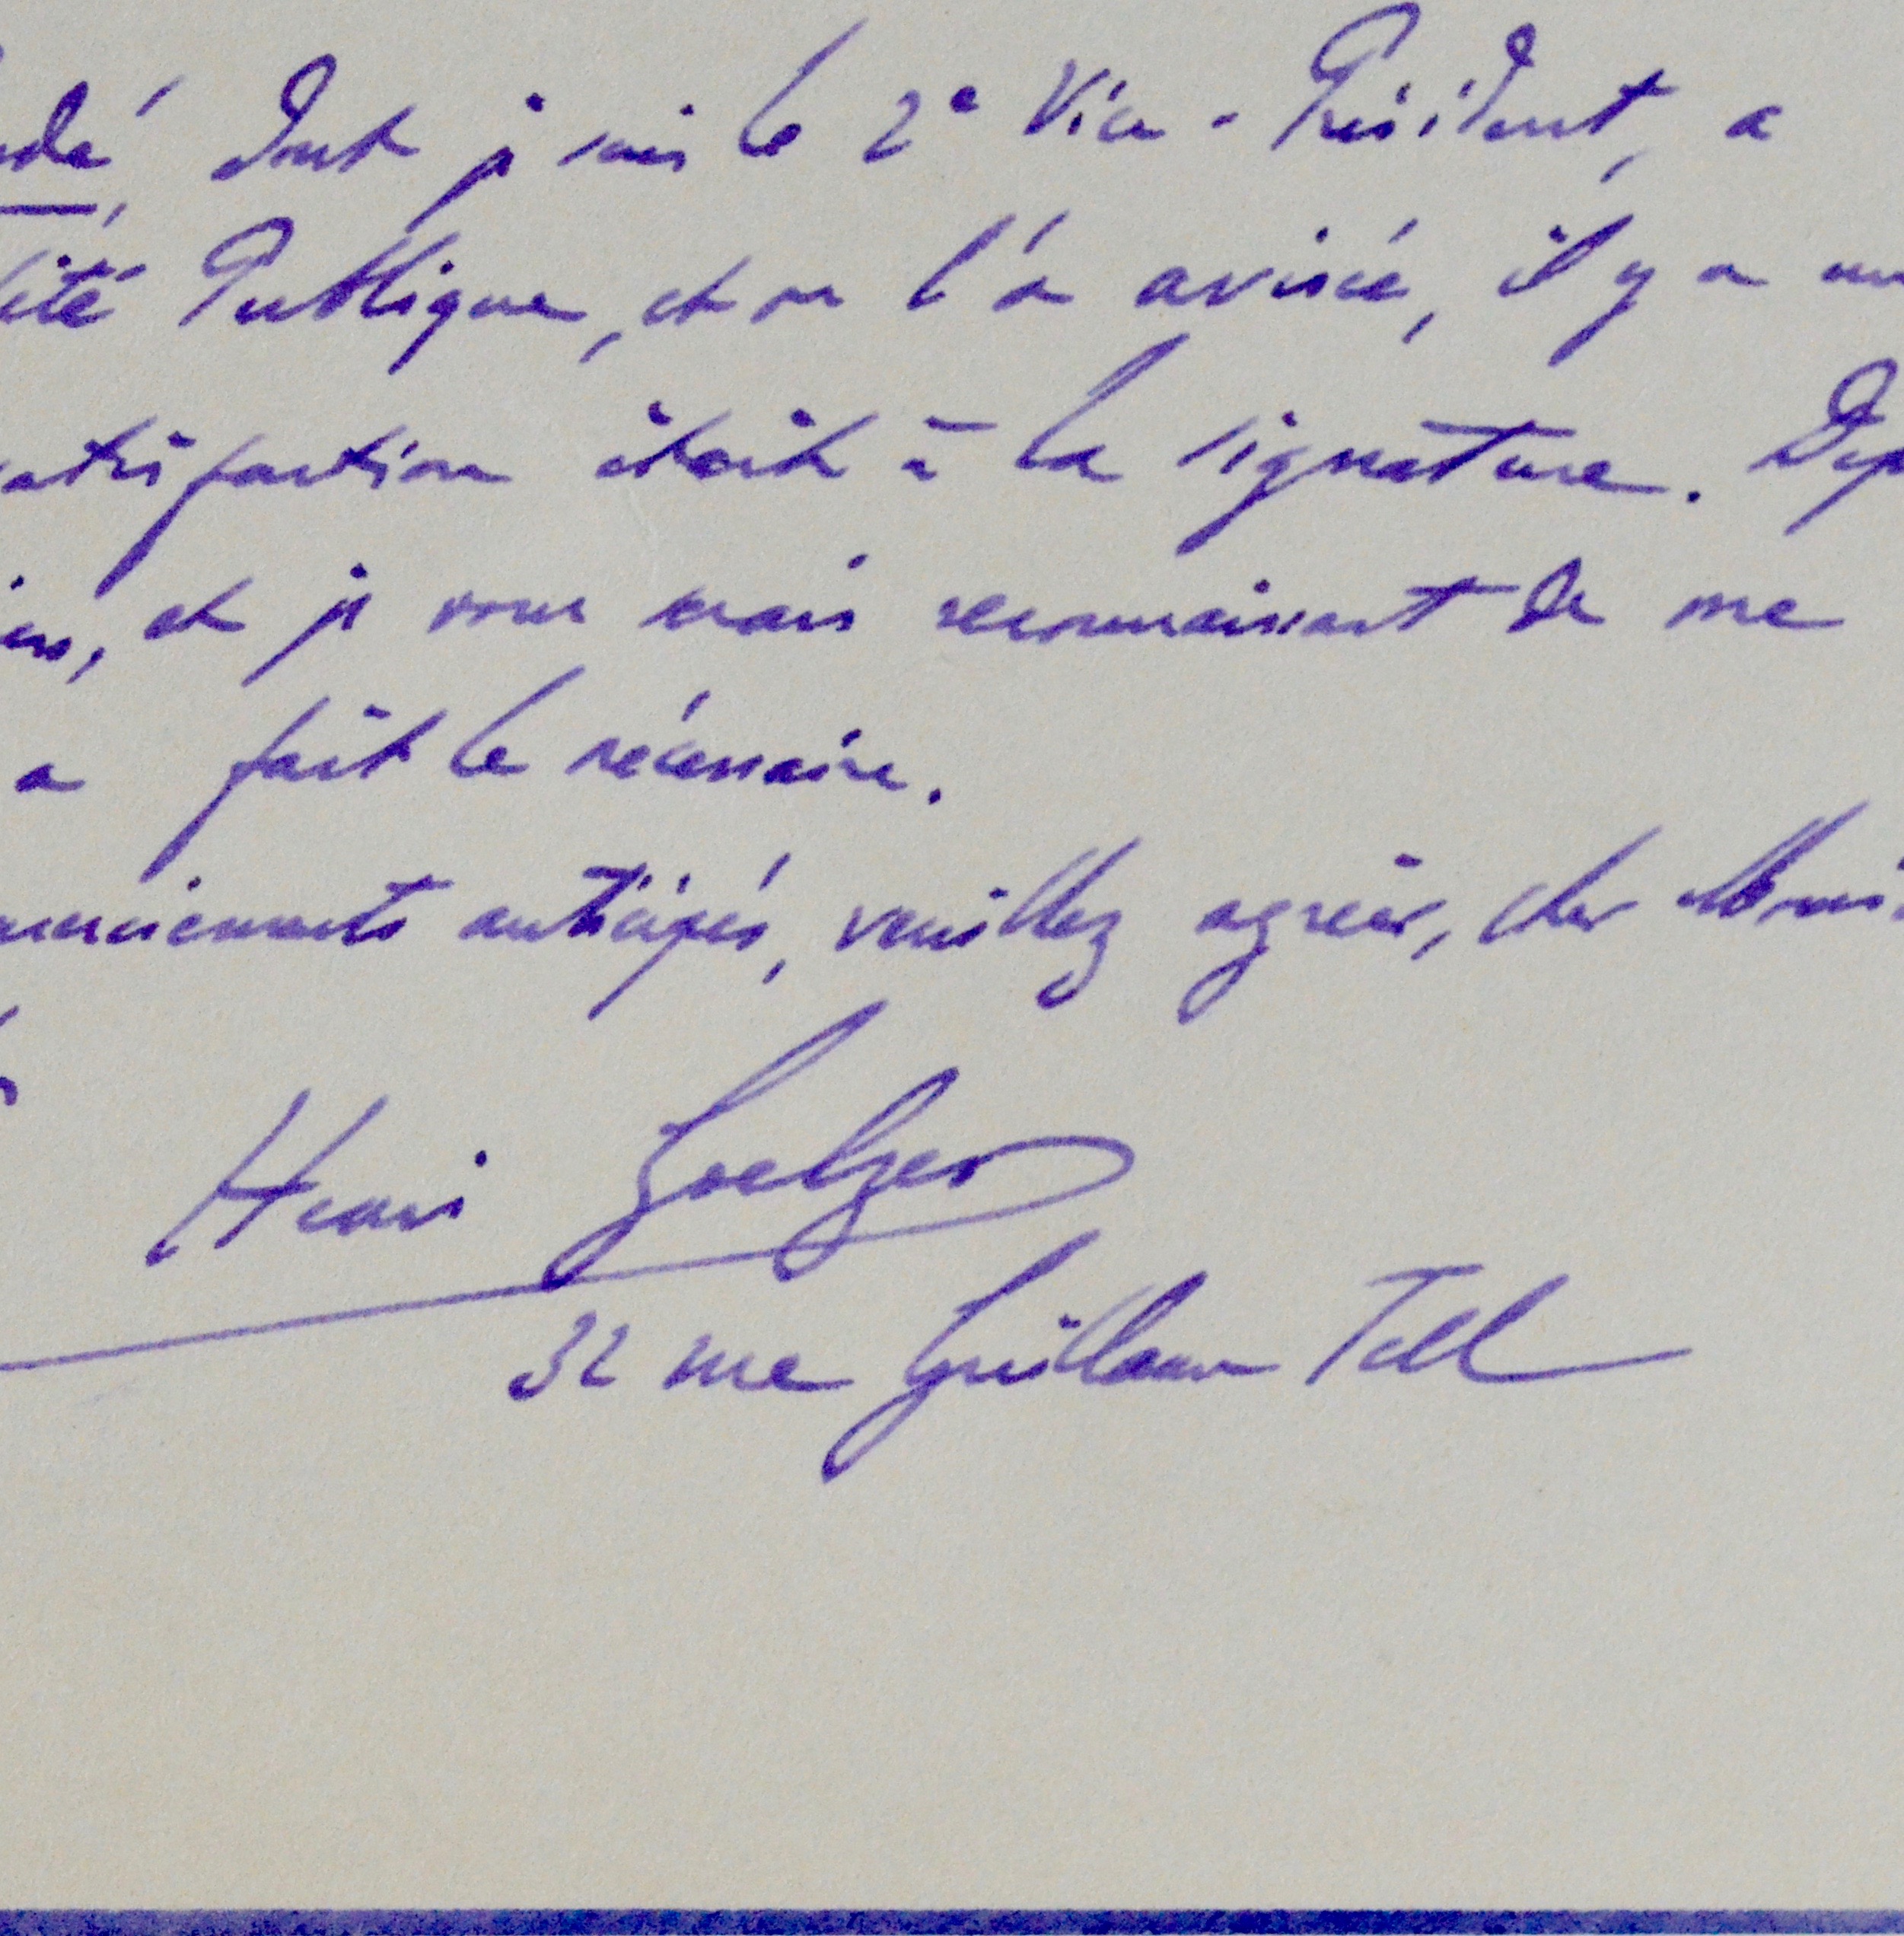 dont je suis le 2e Vice-Président, a
Publique, et on l'a avisée, il y a un
satisfaction était à la signature. Dep
et je vous serais reconnaissant de me
a fait le nécessaire.
merciements anticipés, veuillez agréer, cher Monsi
Henri Goelzer
32 rue Guillaume Tell